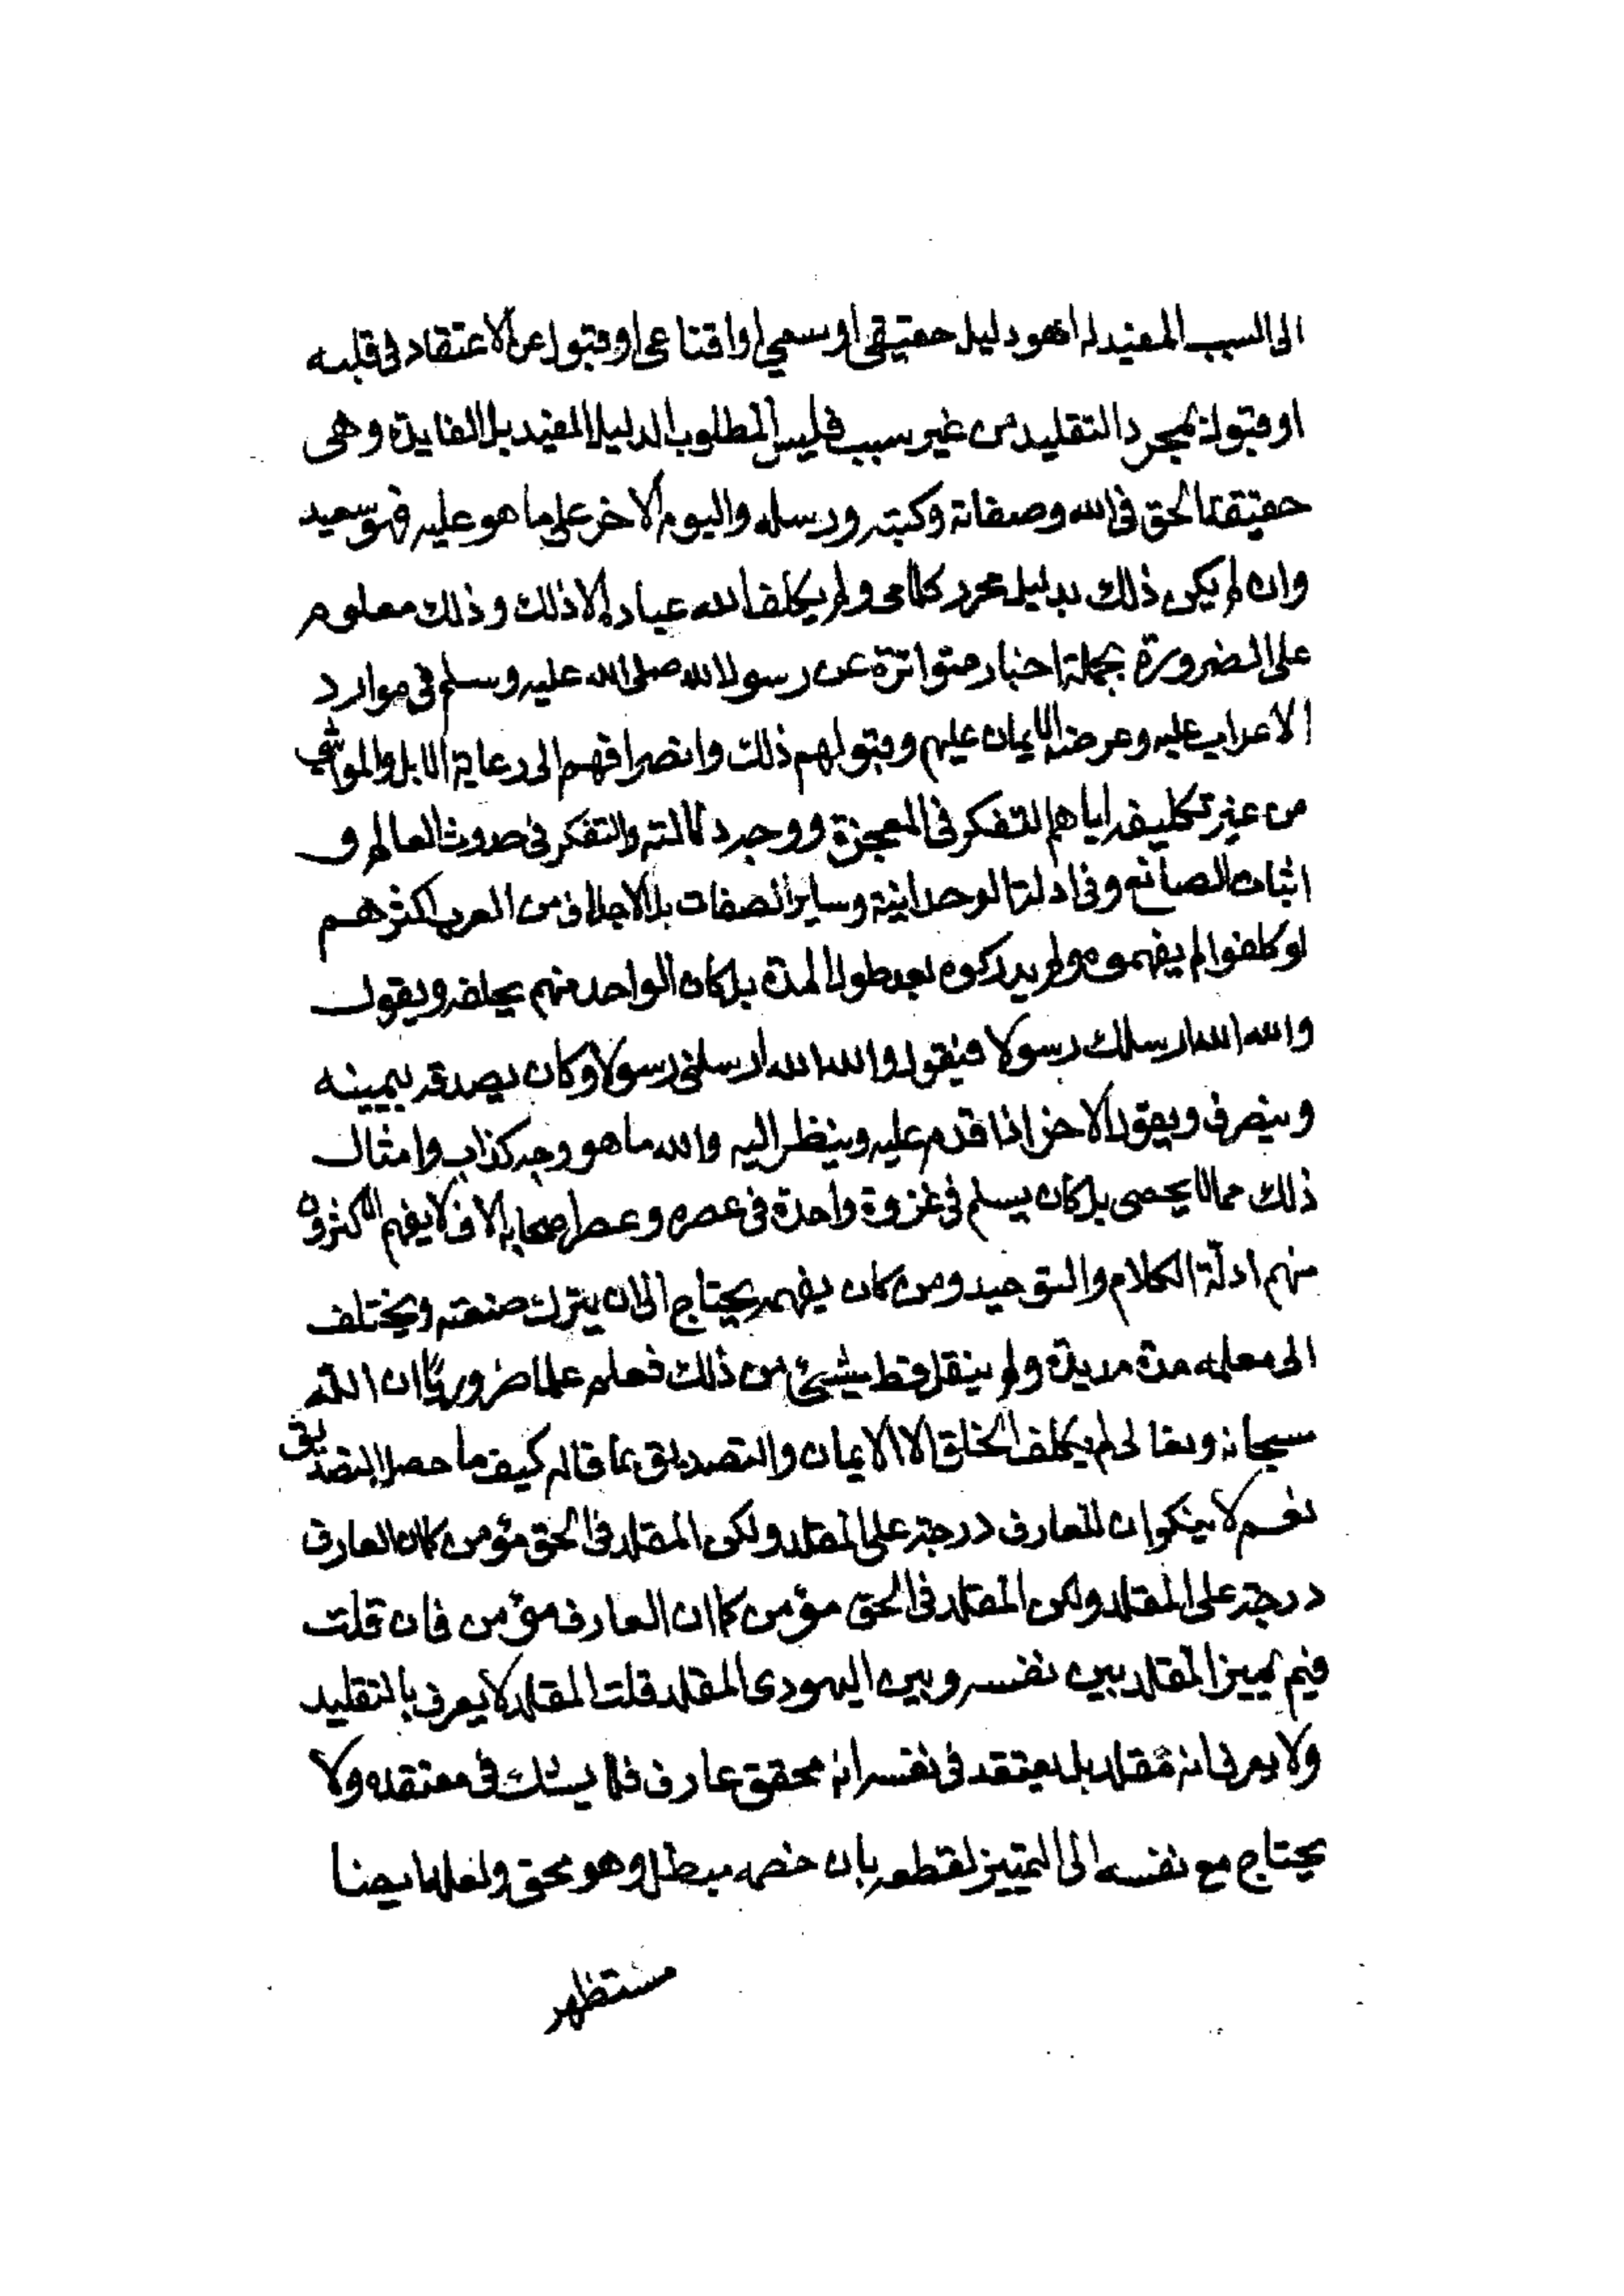 الى السبب المفيد له اهو دليل حقيقي او رسمي او اقناعى او قبول عن الاعتقاد فى قلبه
او قبول بمجرد التقليد من غير سبب فليس المطلوب الدليل المفيد بل الفايدة وهى
حقيقة الحق فى الله وصفاته وكتبه ورسله واليوم الاخر على ما هو عليه فهو سعيد
وان لم يكن ذلك بدليل محرر كلامى ولم يكلف الله عباده الا ذلك وذلك معلوم
على الضرورة بجملة اخبار متواترة عن رسول الله صلى الله عليه وسلم فى موارد
الاعراب عليه وعرضه الايمان عليهم وقبولهم ذلك وانصرافهم الى رعاية الابل والمواشي
من غير تكليفه اياهم التفكر فى المعجزة ووجه دلالته والتفكر فى حدوث العالم و
اثبات الصانع وفى ادلة الوحدانية وساير الصفات بل الاجلاف من العرب اكثرهم
لو كلفوا لم يفهموه ولم يدركوه بعد طول المدة بل كان الواحد منهم يحلفه ويقول
والله الله ارسلك رسولا فيقول والله الله ارسلنى رسولا وكان يصدقه بيمينه
وينصرف ويقول الاخر اذا قدم عليه وينظر اليه والله ما هو وجه كذاب وامثال
ذلك مما لا يحصى بل كان يسلم فى غزوة واحدة فى عصره وعصر اصحابه الاف لا يفهم الاكثرون
منهم ادلّة الكلام والتوحيد ومن كان يفهمه يحتاج الى ان يترك صنعته ويختلف
الى معلمه مدة مديدة ولم ينقل قط شيئ من ذلك فعلم علما ضروريًّا ان اللّه
سبحانه وتعالى لم يكلف الخلق الا الايمان والتصديق بما قاله كيف ما حصل التصديق
نعم لا ينكر ان للعارف درجة على المقلد ولكن المقلد فى الحق مؤمن كما ان العارف
درجة على المقلد ولكن المقلد فى الحق مؤمن كما ان العارف مؤمن فان قلت
فبم يميز المقلد بين نفسه وبين اليهودى المقلد قلت المقلد لا يعرف بالتقليد
ولا يعرف انه مقلد بل يعتقد فى نفسه انه محقق عارف فلا يشك فى معتقده ولا
يحتاج مع نفسه الى التمييز لقطعه بان خصمه مبطل وهو محق ولعله ايضا
مستظهر